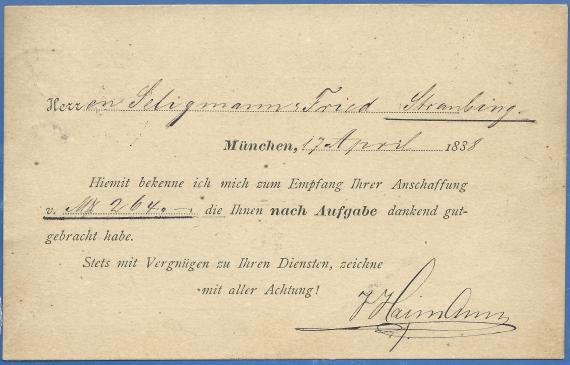 Herren Seligmann & Fried Straubing.
München, 17 April 1888
Hiemit bekenne ich mich zum Empfang Ihrer Anschaffung
v. Mk 264.— die Ihnen nach Aufgabe dankend gut-
gebracht habe.
Stets mit Vergnügen zu Ihren Diensten, zeichne
mit aller Achtung!
J Haimann